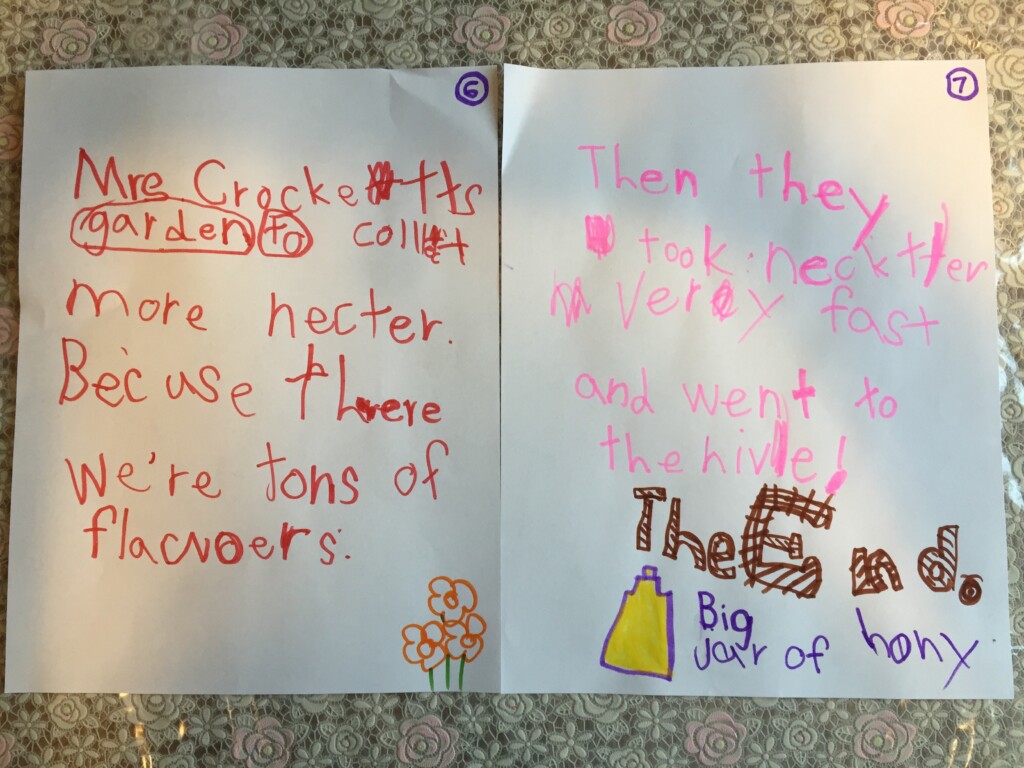 6
Mrs Crocketts
garden to collet
more necter.
Becuse there
we're tons of
flacwoers.
7
Then they
took necktter
very fast
and went to
the hivle!
The End.
Big
jar of hony